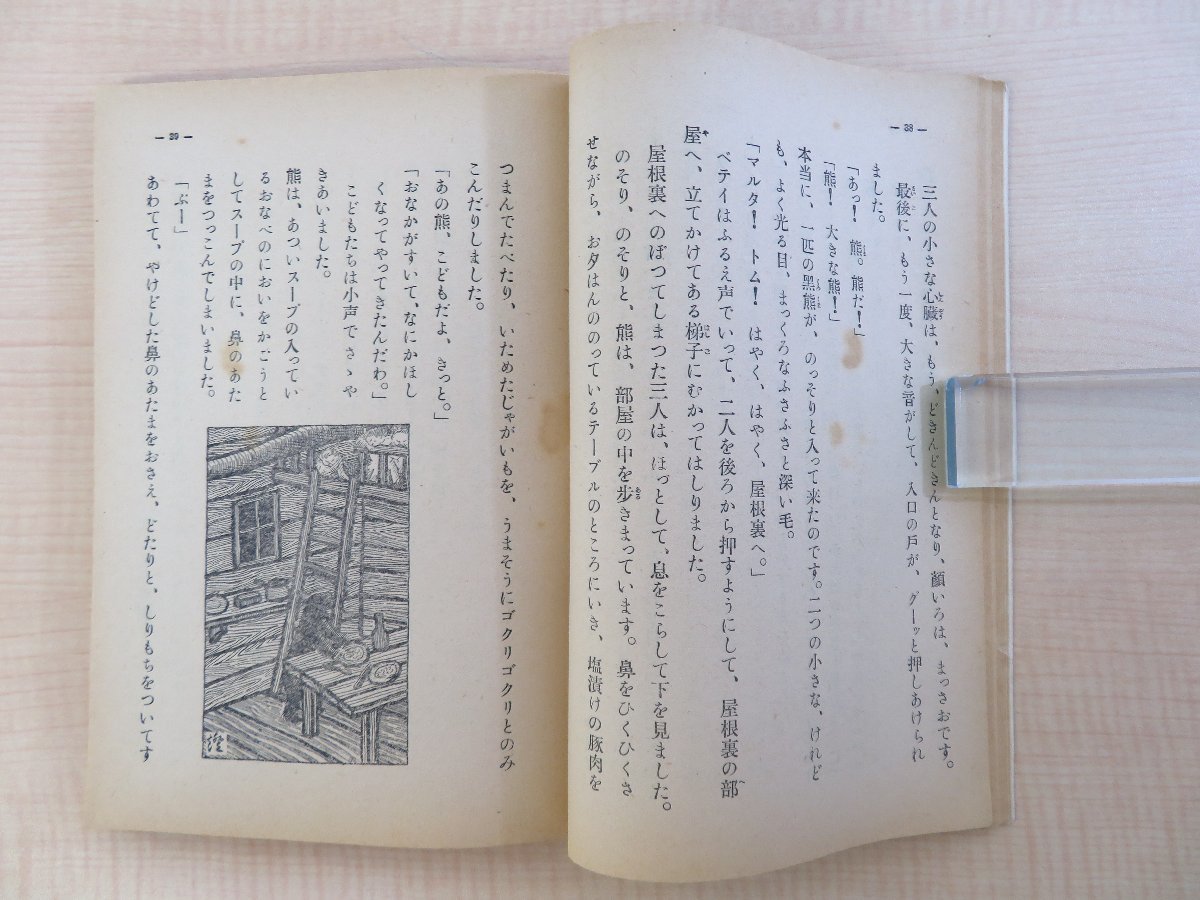 — 38 —
三人の小さな心臓は、もう、どきんどきんとなり、顔いろは、まっさおです。
最後に、もう一度、大きな音がして、入口の戸が、グーッと押しあけられ
ました。
「あっ! 熊。熊だ!」
「熊! 大きな熊!」
本当に、一匹の黒熊が、のっそりと入って来たのです。二つの小さな、けれど
も、よく光る目、まっくろなふさふさと深い毛。
「マルタ! トム! はやく、はやく、屋根裏へ。」
ベテイはふるえ声でいって、二人を後ろから押すようにして、屋根裏の部
屋へ、立てかけてある梯子にむかってはしりました。
屋根裏へのぼつてしまつた三人は、ほっとして、息をこらして下を見ました。
のそり、のそりと、熊は、部屋の中を歩きまっています。鼻をひくひくさ
せながら、お夕はんののっているテーブルのところにいき、塩漬けの豚肉を
— 39 —
つまんでたべたり、いためたじゃがいもを、うまそうにゴクリゴクリとのみ
こんだりしました。
「あの熊、こどもだよ、きっと。」
「おなかがすいて、なにかほし
くなってやってきたんだわ。」
こどもたちは小声でさゝや
きあいました。
熊は、あついスープの入ってい
るおなべのにおいをかごうと
してスープの中に、鼻のあた
まをつっこんでしまいました。
「ぶー」
あわてて、やけどした鼻のあたまをおさえ、どたりと、しりもちをついてす